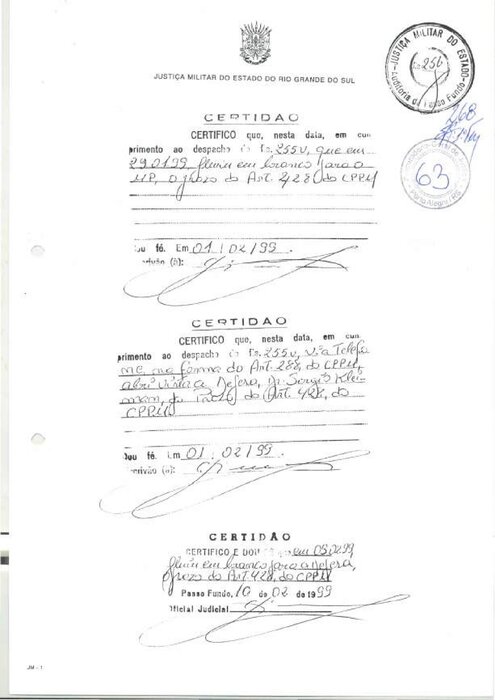 JUSTIÇA MILITAR DO ESTADO DO RIO GRANDE DO SUL
JUSTIÇA MILITAR DO ESTADO
256
Auditoria de Passo Fundo
268
63
Porto Alegre/RS
CERTIDAO
CERTIFICO que, nesta data, em cum
primento ao despacho de fs. 255v, que em
29.01.99, fluiu em branco para o
MP, o prazo do Art. 428, do CPPM
Dou fé. Em 01 / 02 / 99.
Escrivão (ã):
CERTIDAO
CERTIFICO que, nesta data, em cum
primento ao despacho de fs. 255v, via Telefo
ne, na forma do Art. 288, do CPPM,
abri vista a Defesa, Dr. Sergio Klei
man, do Art. 428, do
CPPM
Dou fé. Em 01 / 02 / 99
Escrivão (ã):
CERTIDÃO
CERTIFICO E DOU fé que em 09.02.99
fluiu em branco para a Defesa,
o prazo do Art. 428, do CPPM
Passo Fundo, 10 de 02 de 1999
Oficial Judicial
JM - 1